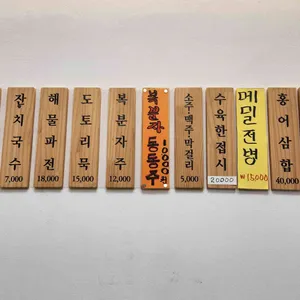 잔치국수
7,000
해물파전
18,000
도토리묵
15,000
복분자주
12,000
복분자동동주
10000원
소주·맥주·막걸리
5,000
수육한접시
20000
메밀전병
₩15,000
홍어삼합
40,000